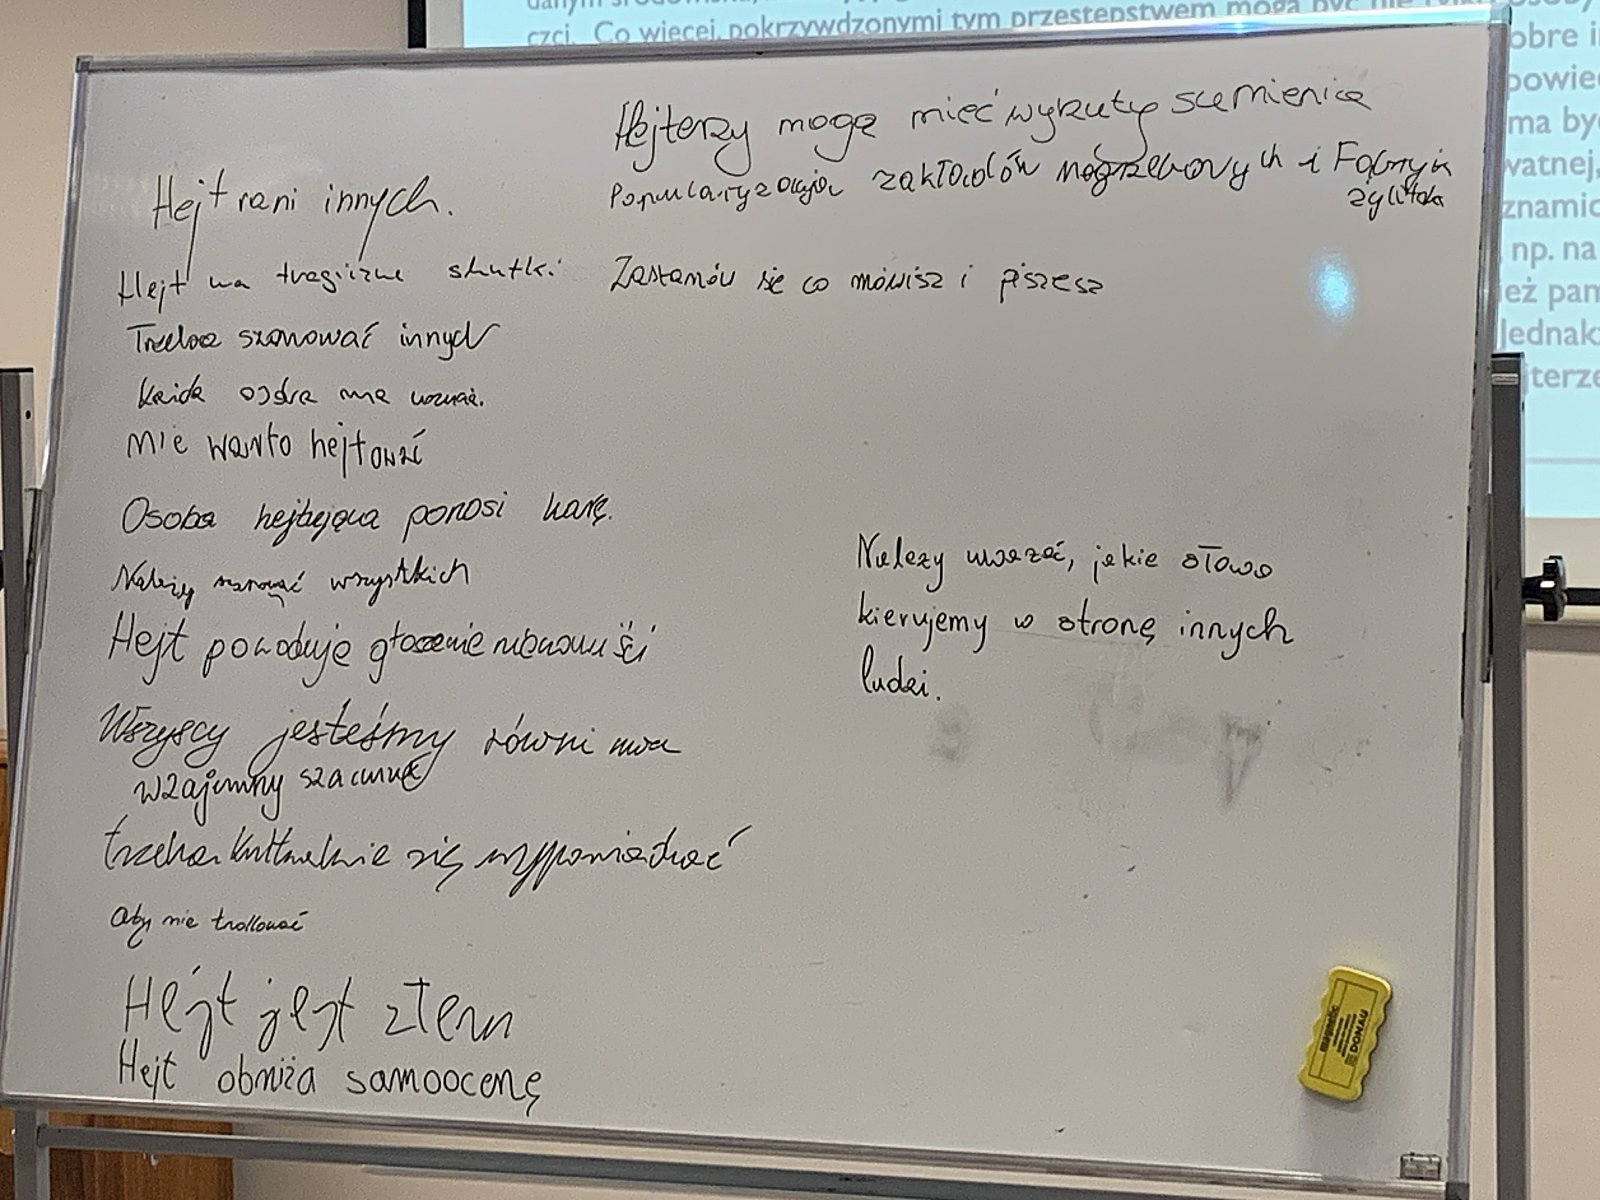 czci. Co więcej, pokrzywdzonymi tym przestępstwem mogą być nie tylko
obre
powie
ma by
watnej,
znamio
np. na
eż pam
jednak
jterze
Hejterzy mogą mieć wyrzuty sumienia
Popularyzacja zakładów pogrzebowych i
Zastanów się co mówisz i piszesz
Hejt rani innych.
Hejt ma tragiczne skutki
Trzeba szanować innych
Każda osoba ma
Nie warto hejtować
Osoba hejtująca ponosi karę.
Należy szanować wszystkich
Hejt powoduje głoszenie nienawiści
Wszyscy jesteśmy równi
wzajemny szacunek
trzeba kulturalnie się wypowiadać
Aby nie trollować
Hejt jest złem
Hejt obniża samoocenę
Należy uważać, jakie słowa
kierujemy w stronę innych
ludzi.
magnetic
DONAU